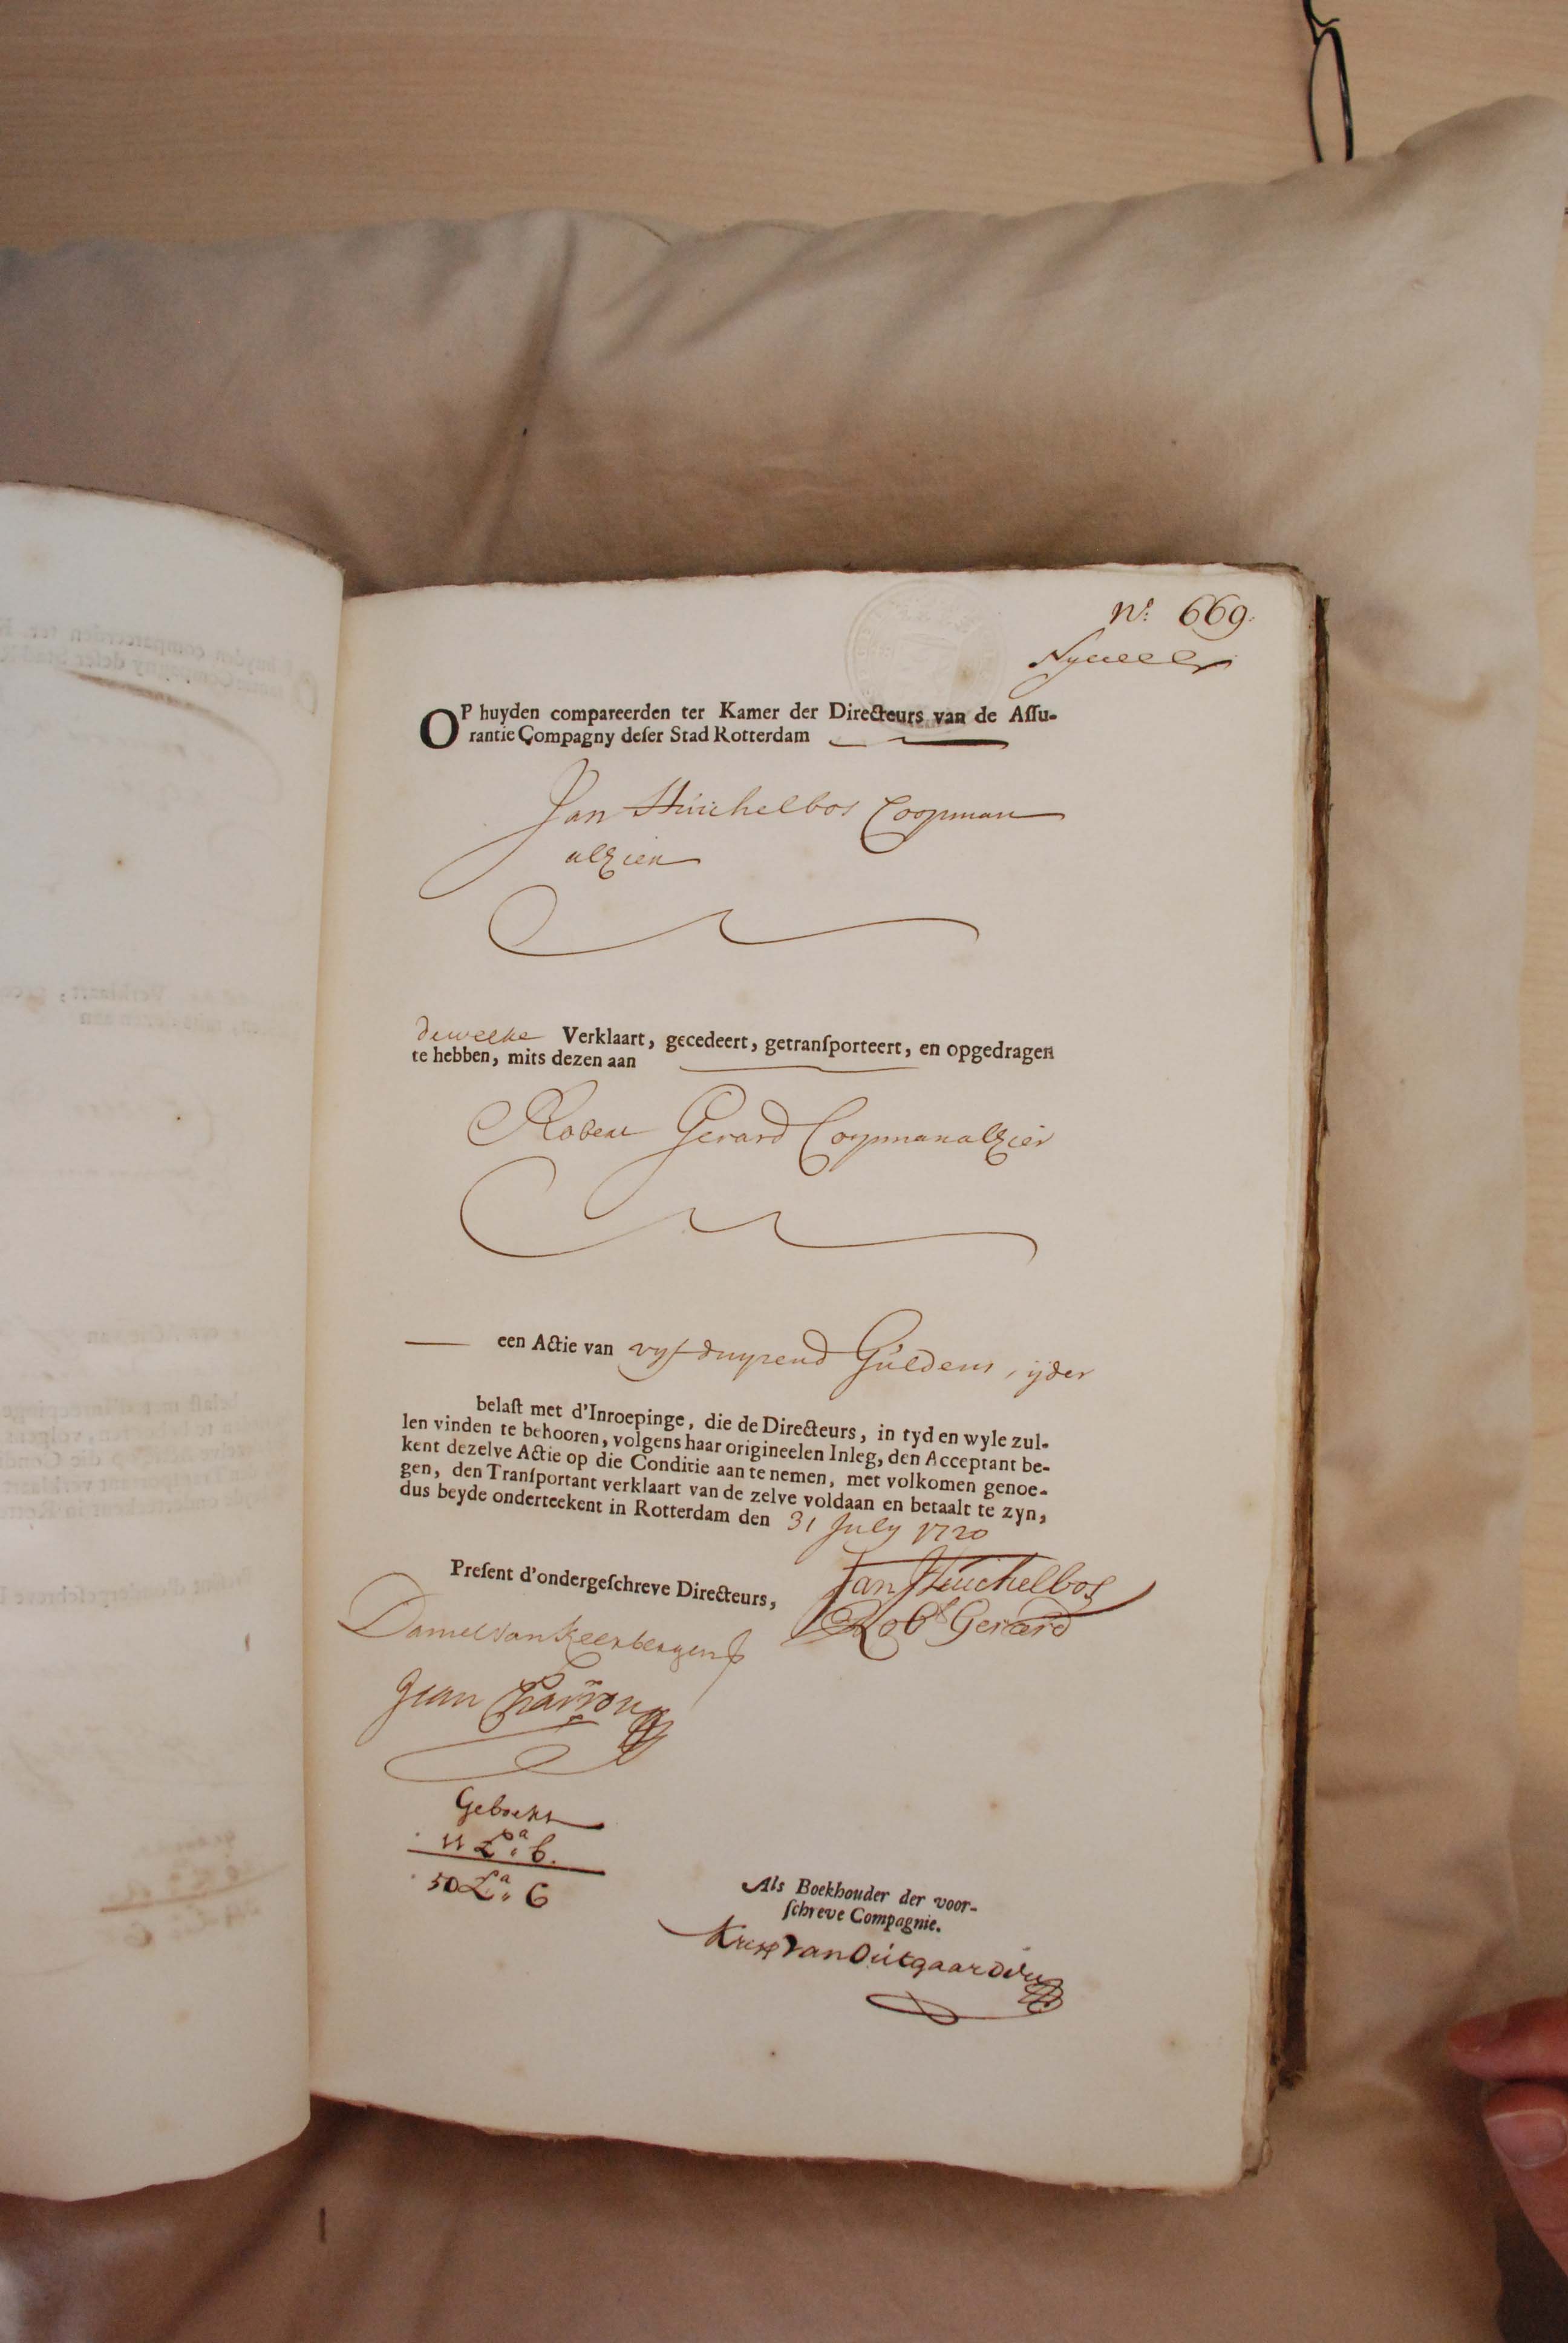 nº: 669.
OP huyden compareerden ter Kamer der Directeurs van de Aſſu-
rantie Compagny deſer Stad Rotterdam
Jan Stüichelbos Coopman
alhier
dewelke Verklaart, gecedeert, getranſporteert, en opgedragen
te hebben, mits dezen aan
Robert Gerard Coopman alhier
een Actie van vyf duysend Güldens, ijder
belaſt met d'Inroepinge, die de Directeurs, in tyd en wyle zul-
len vinden te behooren, volgens haar origineelen Inleg, den Acceptant be-
kent dezelve Actie op die Conditie aan te nemen, met volkomen genoe-
gen, den Tranſportant verklaart van de zelve voldaan en betaalt te zyn,
dus beyde onderteekent in Rotterdam den 31 July 1720
Jan Stüichelbos
Robt Gerard
Preſent d'ondergeſchreve Directeurs,
Daniel van Keerbergen
Jean
Geboekt
11 Lª: b.
50 Lª: C
Als Boekhouder der voor-
ſchreve Compagnie.
van Oütgaarden